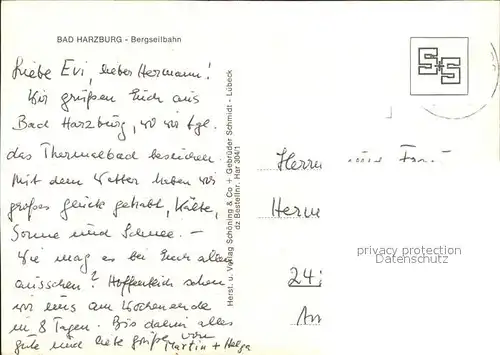 BAD HARZBURG - Bergseilbahn
Liebe Evi, lieber Hermann!
Wir grüßen Euch aus
Bad Harzburg, wo wir tgl.
das Thermalbad besuchen.
Mit dem Wetter haben wir
großes Glück gehabt, Kälte,
Sonne und Schnee. -
Wie mag es bei Euch allen
ausschen? Hoffentlich sehen
wir uns am Wochenende
in 8 Tagen. Bis dahin alles
gute und liebe Grüße von
Martin + Helga
Herst. u. Verlag Schöning & Co + Gebrüder Schmidt - Lübeck
dz Bestellnr. Har 304/1
S+S
Herrn
Herm
privacy protection
24